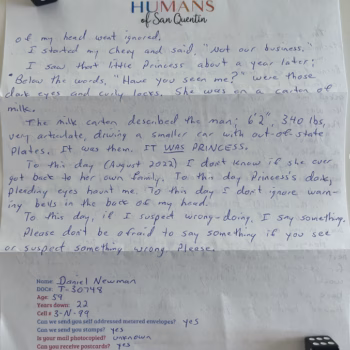 HUMANS
of San Quentin
of my head went ignored.
I started my Chevy and said, "Not our business."
I saw that little Princess about a year later;
Below the words, "Have you seen me?" were those
dark eyes and curly locks. She was on a carton of
milk.
The milk carton described the man; 6'2", 340 lbs,
very articulate, driving a smaller car with out-of-state
plates. It was them. IT WAS PRINCESS.
To this day (August 2022) I don't know if she ever
got back to her own family. To this day Princess's dark,
pleading eyes haunt me. To this day I don't ignore warn-
ing bells in the back of my head.
To this day, if I suspect wrong-doing, I say something.
Please don't be afraid to say something if you see
or suspect something wrong. Please.
Name: Daniel Newman
DOC#: T-30748
Age: 54
Years down: 22
Cell # 3-N-99
Can we send you self addressed metered envelopes? yes
Can we send you stamps? yes
Is your mail photocopied? unknown
Can you receive postcards? yes